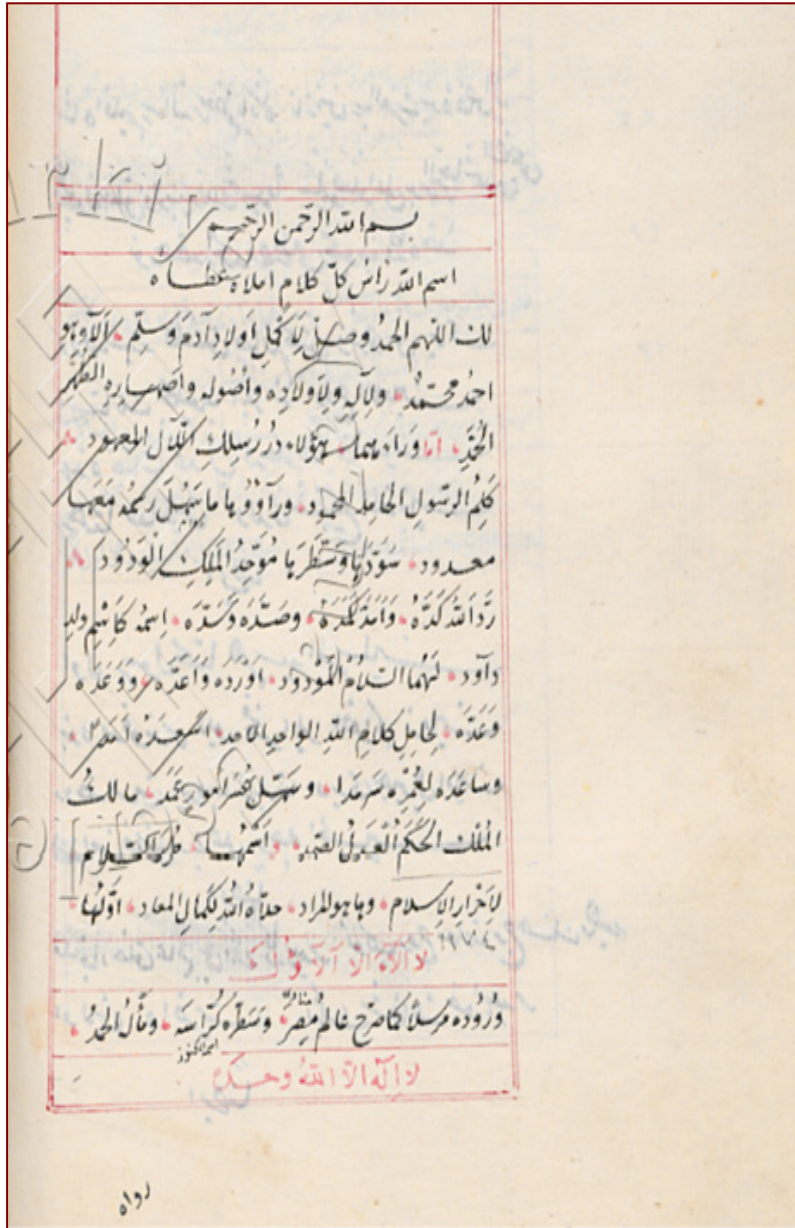 بسم الله الرحمن الرحيم
اسم الله رأس كل كلام املاه عطاه
لك اللهم الحمد وصل لأكمل اولاد آدم وسلم ألا وهو
احمد محمد ولآله ولأولاده وأصوله وأصهاره الطهر
اما وراء مهما هؤلاء درر سلك اللآل المعهود
كلم الرسول الحامد المحمود ما سهل رسمه معها
معدود سودها وسطرها موحد الملك الودود
رد الله كده وأمد مدده وصده وسده اسمه كاسم ولد
داود لهما السلام المودود اورده وأعده ووعده
وعده لحامل كلام الله الواحد الاحد اسعده
وساعده لعمره سرمدا وسهل امور مالك
الملك الحكم العدل الصمد واسمها طرة
لأحرار الإسلام وها هو المراد حلاه الله لكمال المعاد اولها
لا اله الا
وروده مرسلا كما صرح عالم مصر وسطره كراسه ومآل الحمد
لا إله الا الله وحده
رواه